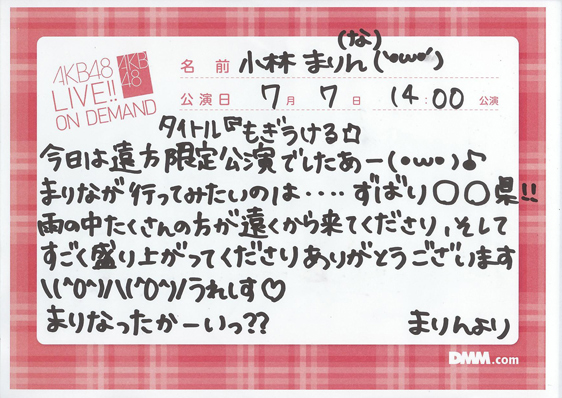 AKB48
LIVE!!
ON DEMAND
AKB
48
(な)
名前 小林 まりん(`・ω・´)
公演日 7月7日 14:00 公演
タイトル『もぎうける☆
今日は遠方限定公演でしたあー(・ω・)♪
まりなが行ってみたいのは‥‥ずばり〇〇県!!
雨の中たくさんの方が遠くから来てくださり、そして
すごく盛り上がってくださりありがとうございます
\(^O^)/\(^O^)/うれしす♡
まりなったかーいっ??
まりんより
DMM.com